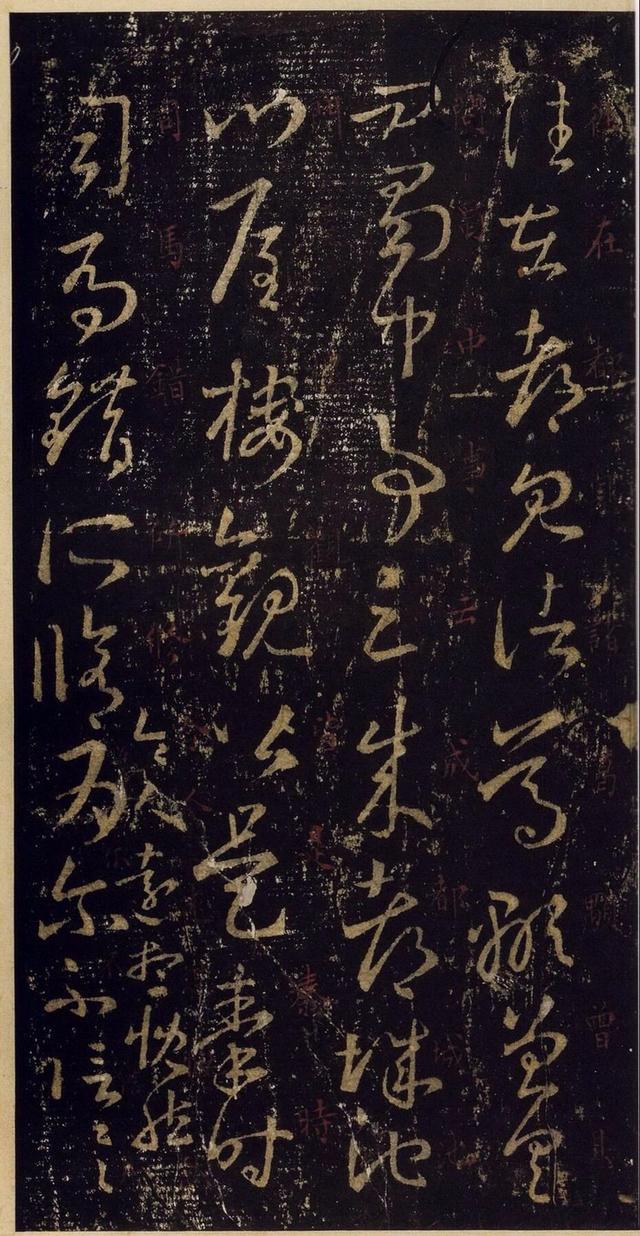 往在都見諸葛顒曾具
問蜀中事云成都城池
門屋樓觀皆是秦時
司馬錯所脩
令人遠想慨然
為爾不信一一